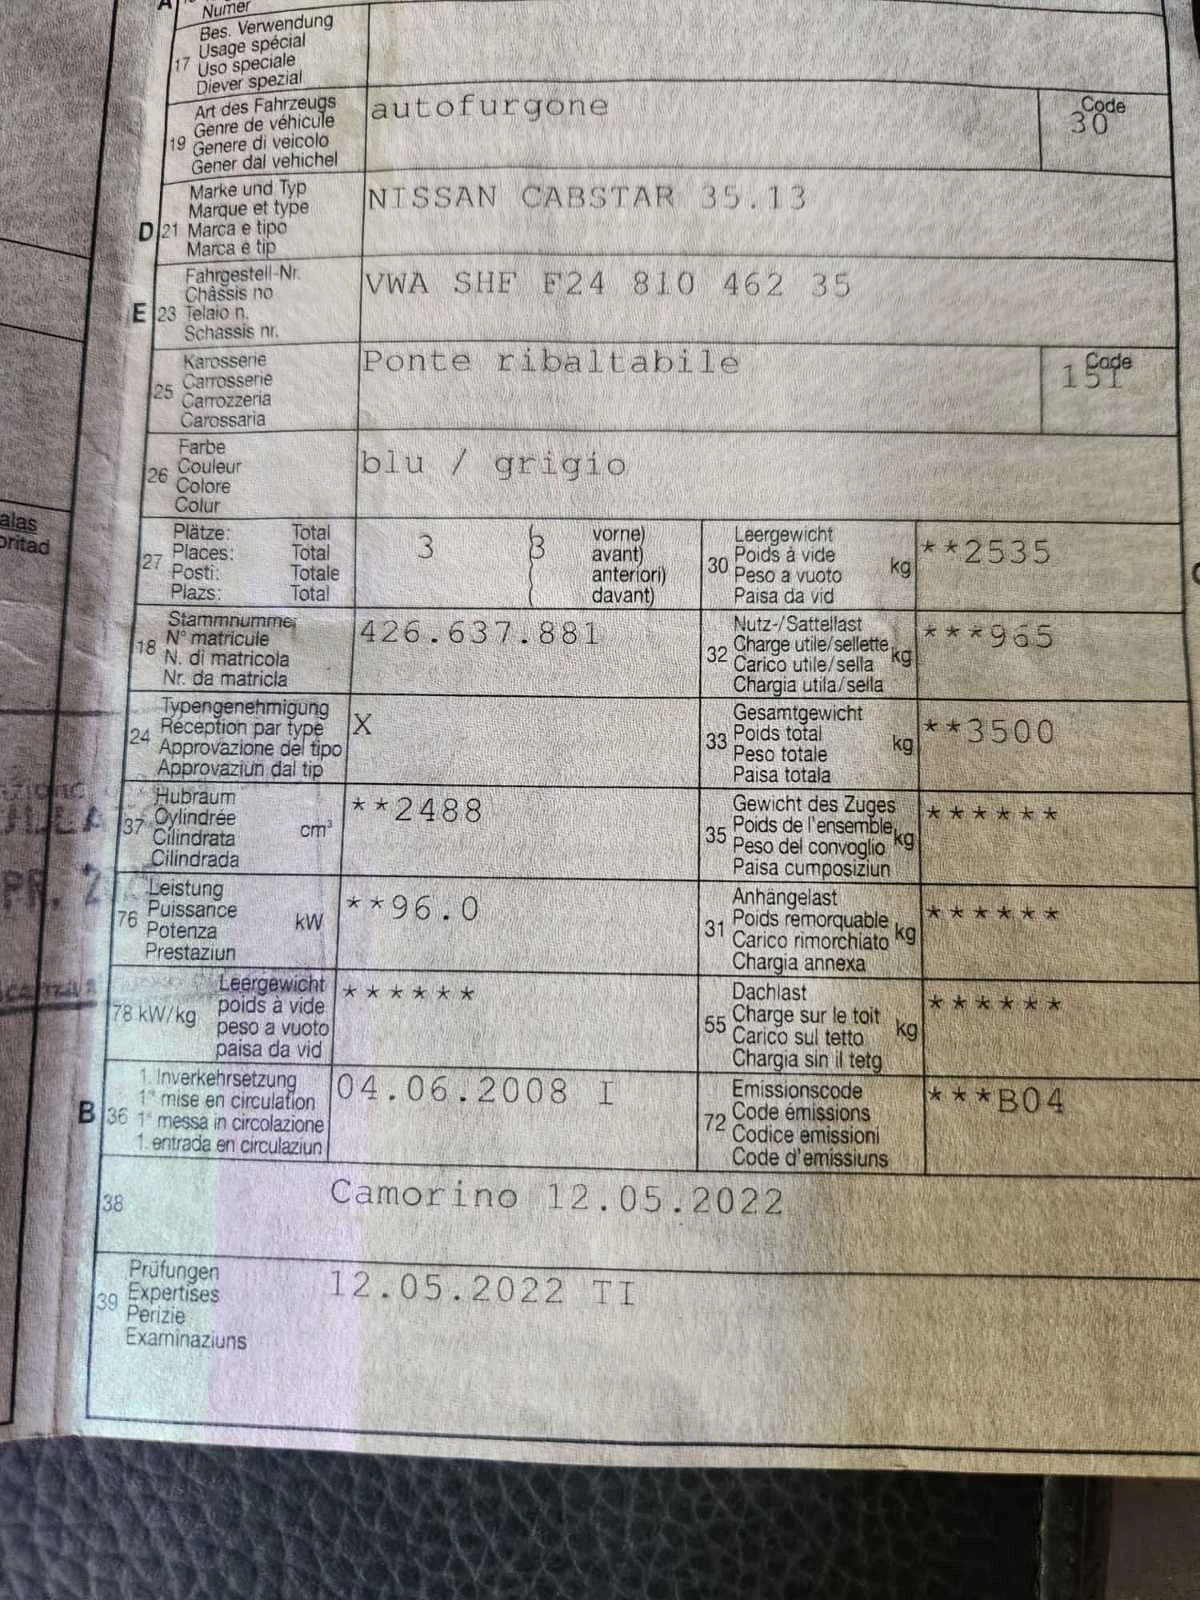 A
Numer
17
Bes. Verwendung
Usage spécial
Uso speciale
Diever spezial
19
Art des Fahrzeugs
Genre de véhicule
Genere di veicolo
Gener dal vehichel
autofurgone
Code
30
D 21
Marke und Typ
Marque et type
Marca e tipo
Marca e tip
NISSAN CABSTAR 35.13
E 23
Fahrgestell-Nr.
Châssis no
Telaio n.
Schassis nr.
VWA SHF F24 810 462 35
25
Karosserie
Carrosserie
Carrozzeria
Carossaria
Ponte ribaltabile
Code
151
26
Farbe
Couleur
Colore
Colur
blu / grigio
27
Plätze: Total
Places: Total
Posti: Totale
Plazs: Total
3
3
vorne)
avant)
anteriori)
davant)
30
Leergewicht
Poids à vide
Peso a vuoto
Paisa da vid
kg
**2535
18
Stammnummer
N° matricule
N. di matricola
Nr. da matricla
426.637.881
32
Nutz-/Sattellast
Charge utile/sellette
Carico utile/sella
Chargia utila/sella
kg
***965
24
Typengenehmigung
Réception par type
Approvazione del tipo
Approvaziun dal tip
X
33
Gesamtgewicht
Poids total
Peso totale
Paisa totala
kg
**3500
37
Hubraum
Cylindrée
Cilindrata
Cilindrada
cm³
**2488
35
Gewicht des Zuges
Poids de l'ensemble
Peso del convoglio
Paisa cumposiziun
kg
******
76
Leistung
Puissance
Potenza
Prestaziun
kW
**96.0
31
Anhängelast
Poids remorquable
Carico rimorchiato
Chargia annexa
kg
******
78 kW/kg
Leergewicht
poids à vide
peso a vuoto
paisa da vid
******
55
Dachlast
Charge sur le toit
Carico sul tetto
Chargia sin il tetg
kg
******
B 36
1. Inverkehrsetzung
1re mise en circulation
1a messa in circolazione
1. entrada en circulaziun
04.06.2008 I
72
Emissionscode
Code émissions
Codice emissioni
Code d'emissiuns
***B04
38
Camorino 12.05.2022
39
Prüfungen
Expertises
Perizie
Examinaziuns
12.05.2022 TI